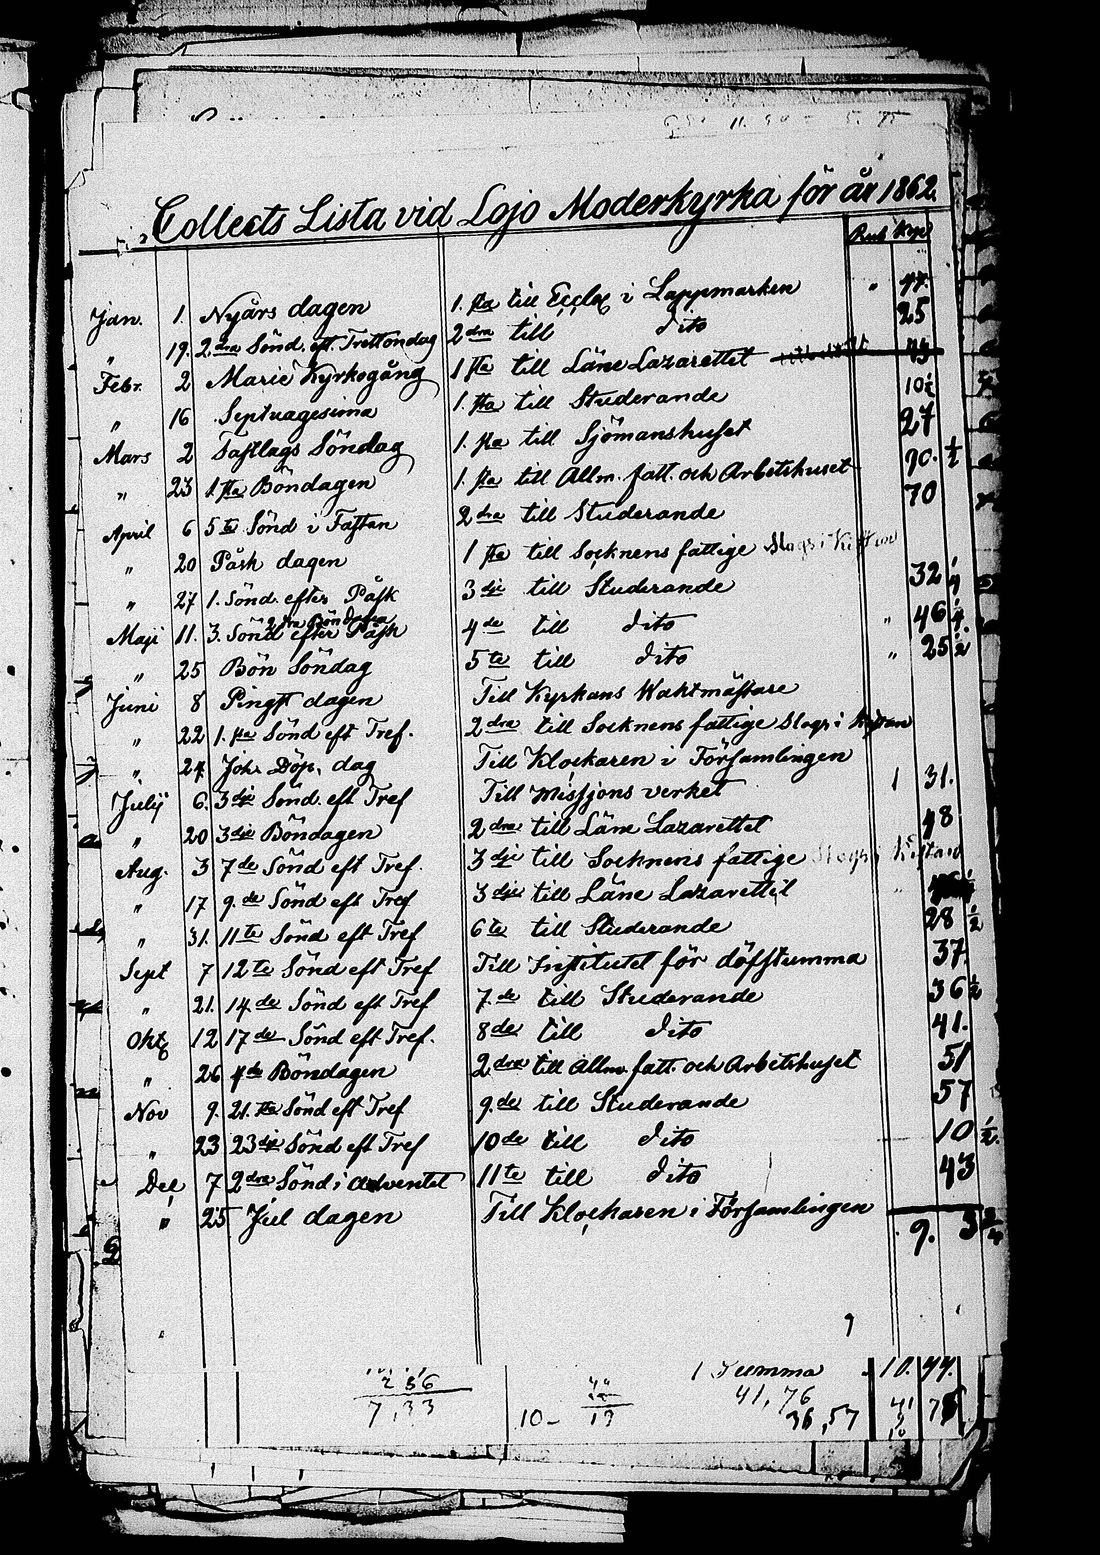 Collects Lista vid Lojo Moderkyrka för år 1862.
Rub Kop
Jan. 1. Nyårs dagen 1. sta till Eccles i Lappmarken " 44.
" 19. 2. dra Sönd. eft. Trettondag 2 dra till dito 25
Febr. 2 Mariæ Kyrkogång 1 sta till Läne Lazarettet 43
" 16 Septuagesima 1. sta till Studerande 10 1/2
Mars 2 Fastlags Söndag 1. sta till Sjömanshuset 27
" 23 1. sta Böndagen 1. sta till Allm. fatt. och Arbetshuset 90. 1/2
April 6 5 te Sönd i Fastan 2 dra till Studerande 70
" 20 Påsk dagen 1 sta till Socknens fattige Slogs i Kistan
" 27 1. Sönd. efter Påsk 3 dje till Studerande 32 1/4
Maji 11. 3. Sönd efter Påsk 4 de till dito " 46 1/4.
" 25 Bön Söndag 5 te till dito " 25 1/2
Juni 8 Pingst dagen Till Kyrkans Waktmästare
" 22 1. sta Sönd eft Tref. 2 dra till Socknens fattige Slogs i Kistan
" 24 Joh. Döp. dag Till Klockaren i Församlingen
Julij 6. 3 dje Sönd. eft Tref Till Missjons verket 1 31.
" 20 3 dje Böndagen 2 dra till Läne Lazarettet 48
Aug. 3 7 de Sönd eft Tref. 3 dje till Socknens fattige Slogs i Kistan
" 17 9. de Sönd eft Tref 3 dje till Läne Lazarettet
" 31. 11 te Sönd eft Tref 6 te till Studerande 28 1/2
Sept 7 12 te Sönd eft Tref Till Institutet för döfstumma 37.
" 21. 14. de Sönd eft Tref 7. de till Studerande 36 1/2
Okt 12 17 de Sönd eft Tref. 8 de till dito 41.
" 26 4 de Böndagen 2 dra till Allm. fatt. och Arbetshuset 51
Nov 9. 21. sta Sönd eft Tref 9. de till Studerande 57
" 23 23 dje Sönd eft Tref 10 de till dito 10 1/2.
Dec 7 2 dra Sönd i adventet 11 te till dito 43
" 25 Jul dagen Till Klockaren i Församlingen
9. 3 3/4
Summa 10. 44.
236 41,76
7,33 10- 19 36,57